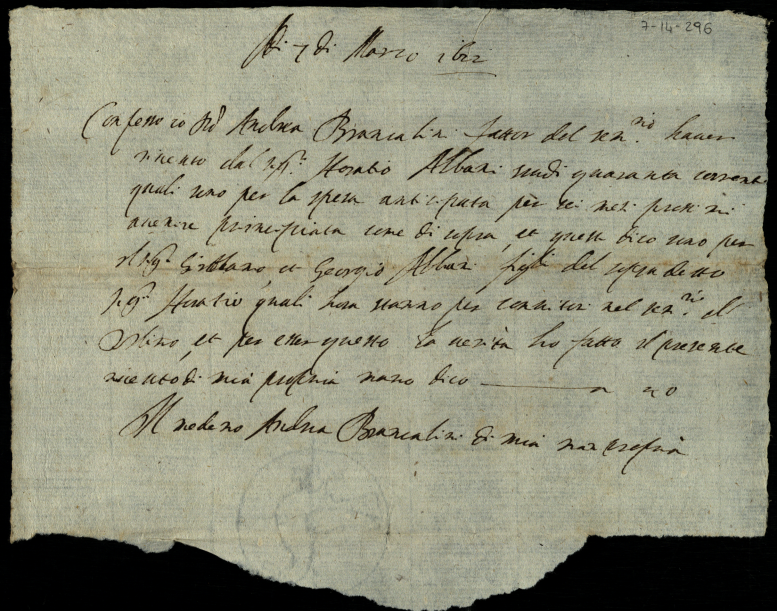 7-14-296
Adi 7 di Marzo 1622
Confesso io Andrea Brancalini fattor del sem.rio haver
riceuto dal sig.r Horatio Albani scudi quaranta correnti
quali sono per la spesa anticipata per sei mesi prossimi
avenire principiata come di sopra, et questi dico sono per
il sig.r et Georgio Albani figli del sopradetto
sig.r Horatio quali hora stanno per convitori nel sem.rio
Urbino, et per esser questo la verità ho fatto il presente
riceuto di mia propria mano dico
Il medemo Andrea Brancalini di mia man propria